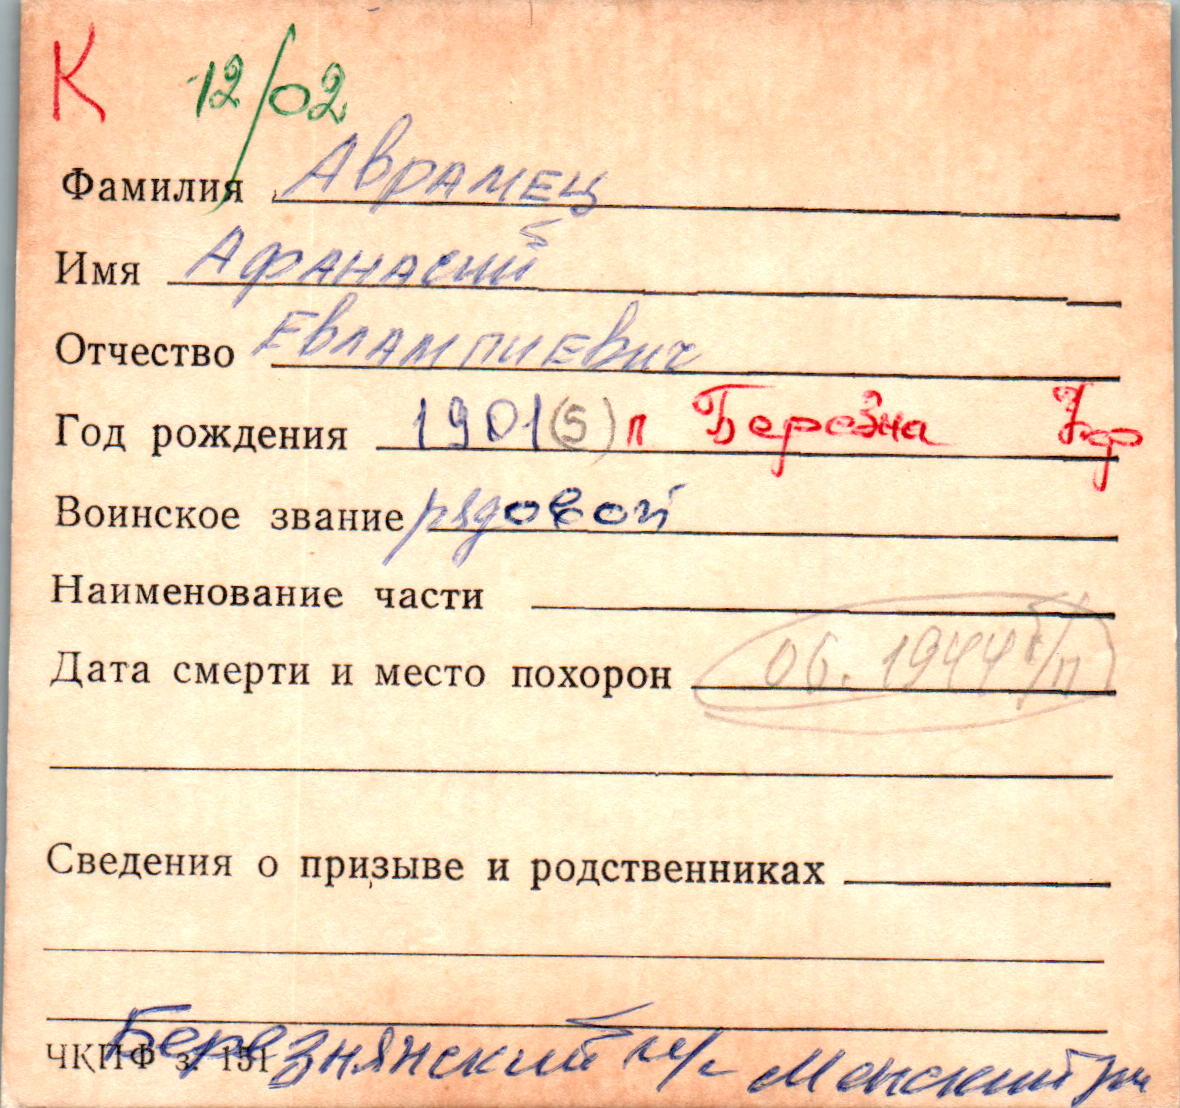 К 12/02
Фамилия Аврамец
Имя Афанасий
Отчество Евлампиевич
Год рождения 1901(5) п Березна
Воинское звание рядовой
Наименование части
Дата смерти и место похорон 06.1944 б/п
Сведения о призыве и родственниках
ЧКПФ з. 151 Березнянский Менский